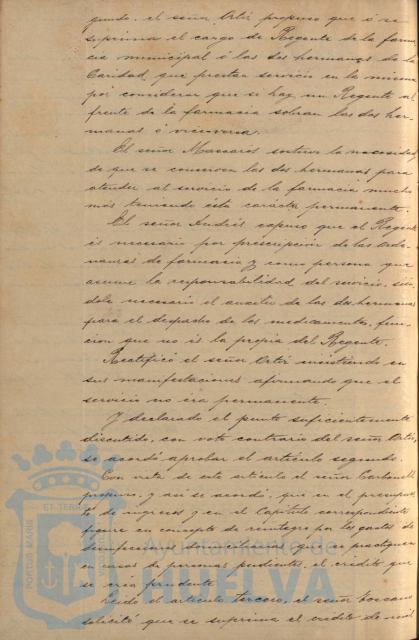 gundo, el señor Ortiz propuso que ó se
suprima el cargo de Regente de la farma
cia municipal ó las dos hermanas de la
Caridad que prestan servicio en la misma
por considerar que si hay un Regente al
frente de la farmacia sobran las dos her-
manas ó viceversa.
El señor Massarós sostuvo la necesidad
de que se conserven las dos hermanas para
atender al servicio de la farmacia mucho
más teniendo éste carácter permanente.
El señor Andrés expuso que el Regente
es necesario por prescripción de las orde-
nanzas de farmacia y como persona que
asume la responsabilidad del servicio, sién-
dole necesario el auxilio de las dos hermanas
para el despacho de los medicamentos, fun-
cion que no es la propia del Regente.
Rectificó el señor Ortiz insistiendo en
sus manifestaciones afirmando que el
servicio no era permanente.
Y declarado el punto suficientemente
discutido, con voto contrario del señor Ortiz,
se acordó aprobar el artículo segundo.
Con vista de este artículo el señor Carbonell
propuso, y así se acordó, que en el presupues
to de ingresos y en el Capítulo correspondiente
figure en concepto de reintegro por los gastos de
desinfeccion á domicilio, que se practiquen
en casas de personas pudientes, el crédito que
se crea prudente.
Leido el artículo tercero, el señor Toscano
solicitó que se suprima el crédito de mil
PORTUS MARIS ET TERRÆ
Ayuntamiento de
HUELVA